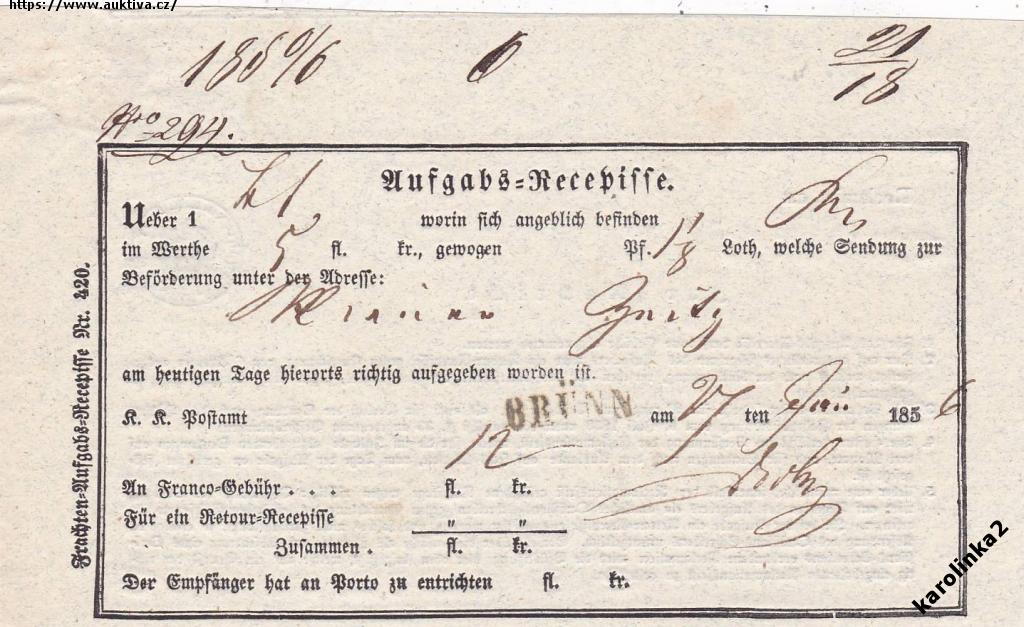 https://www.auktiva.cz/
185 6/6 6 21/18
Nro 294.
Aufgabs-Recepisse.
Ueber 1 worin sich angeblich befinden
im Werthe 5 fl. kr., gewogen Pf. 1/8 Loth, welche Sendung zur
Beförderung unter der Adresse:
am heutigen Tage hierorts richtig aufgegeben worden ist.
K. K. Postamt BRÜNN am 27 ten Juni 1856
12
An Franco-Gebühr . . . fl. kr.
Für ein Retour-Recepisse " "
Zusammen . fl. kr.
Der Empfänger hat an Porto zu entrichten fl. kr.
Frachten-Aufgabs-Recepisse Nr. 420.
karolinka2